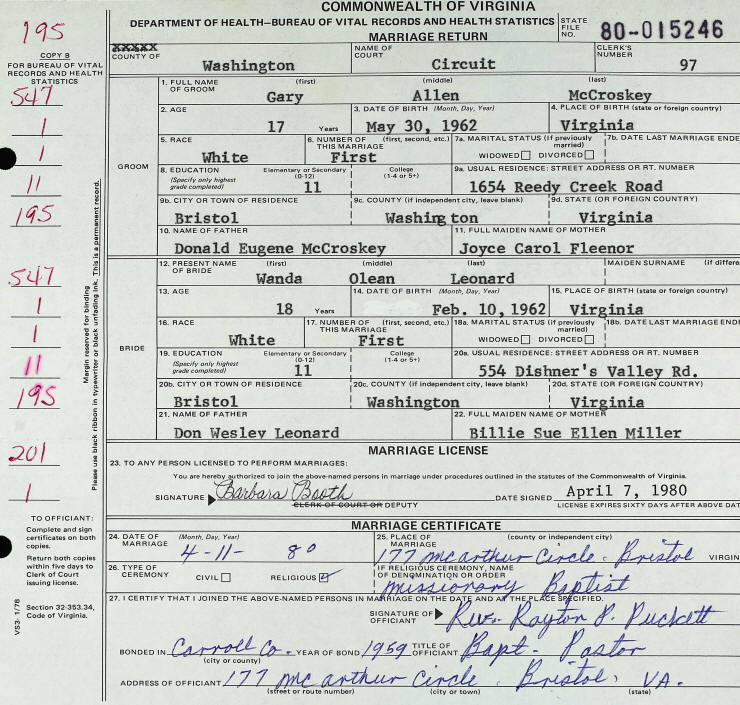 COMMONWEALTH OF VIRGINIA
DEPARTMENT OF HEALTH—BUREAU OF VITAL RECORDS AND HEALTH STATISTICS
MARRIAGE RETURN
STATE FILE NO. 80-015246
195
COPY B
FOR BUREAU OF VITAL RECORDS AND HEALTH STATISTICS
XXXXX
COUNTY OF Washington
NAME OF COURT Circuit
CLERK'S NUMBER 97
GROOM
1. FULL NAME OF GROOM (first) (middle) (last)
Gary Allen McCroskey
547
2. AGE 17 Years
3. DATE OF BIRTH (Month, Day, Year) May 30, 1962
4. PLACE OF BIRTH (state or foreign country) Virginia
1
5. RACE White
6. NUMBER OF THIS MARRIAGE (first, second, etc.) First
7a. MARITAL STATUS (If previously married) WIDOWED DIVORCED
7b. DATE LAST MARRIAGE ENDE
1
8. EDUCATION (Specify only highest grade completed) Elementary or Secondary (0-12) 11 College (1-4 or 5+)
9a. USUAL RESIDENCE: STREET ADDRESS OR RT. NUMBER 1654 Reedy Creek Road
11
9b. CITY OR TOWN OF RESIDENCE Bristol
9c. COUNTY (if independent city, leave blank) Washington
9d. STATE (OR FOREIGN COUNTRY) Virginia
195
10. NAME OF FATHER Donald Eugene McCroskey
11. FULL MAIDEN NAME OF MOTHER Joyce Carol Fleenor
BRIDE
12. PRESENT NAME OF BRIDE (first) (middle) (last) MAIDEN SURNAME (if differe
Wanda Olean Leonard
547
13. AGE 18 Years
14. DATE OF BIRTH (Month, Day, Year) Feb. 10, 1962
15. PLACE OF BIRTH (state or foreign country) Virginia
1
16. RACE White
17. NUMBER OF THIS MARRIAGE (first, second, etc.) First
18a. MARITAL STATUS (If previously married) WIDOWED DIVORCED
18b. DATE LAST MARRIAGE ENDE
1
19. EDUCATION (Specify only highest grade completed) Elementary or Secondary (0-12) 11 College (1-4 or 5+)
20a. USUAL RESIDENCE: STREET ADDRESS OR RT. NUMBER 554 Dishner's Valley Rd.
11
20b. CITY OR TOWN OF RESIDENCE Bristol
20c. COUNTY (if independent city, leave blank) Washington
20d. STATE (OR FOREIGN COUNTRY) Virginia
195
21. NAME OF FATHER Don Wesley Leonard
22. FULL MAIDEN NAME OF MOTHER Billie Sue Ellen Miller
Margin reserved for binding
Please use black ribbon in typewriter or black unfading ink. This is a permanent record.
MARRIAGE LICENSE
201
23. TO ANY PERSON LICENSED TO PERFORM MARRIAGES:
You are hereby authorized to join the above-named persons in marriage under procedures outlined in the statutes of the Commonwealth of Virginia.
1
SIGNATURE Barbara Booth DATE SIGNED April 7, 1980
CLERK OF COURT OR DEPUTY LICENSE EXPIRES SIXTY DAYS AFTER ABOVE DAT
TO OFFICIANT:
Complete and sign certificates on both copies.
Return both copies within five days to Clerk of Court issuing license.
Section 32-353.34, Code of Virginia.
VS3- 1/78
MARRIAGE CERTIFICATE
24. DATE OF MARRIAGE (Month, Day, Year) 4-11-80
25. PLACE OF MARRIAGE (county or independent city) 177 McArthur Circle, Bristol VIRGIN
26. TYPE OF CEREMONY CIVIL RELIGIOUS
IF RELIGIOUS CEREMONY, NAME OF DENOMINATION OR ORDER Missionary Baptist
27. I CERTIFY THAT I JOINED THE ABOVE-NAMED PERSONS IN MARRIAGE ON THE DATE AND AT THE PLACE SPECIFIED.
SIGNATURE OF OFFICIANT Rev. Rayton P. Puckett
BONDED IN Carroll Co. (city or county) YEAR OF BOND 1959 TITLE OF OFFICIANT Bapt. Pastor
ADDRESS OF OFFICIANT 177 Mc arthur Circle, Bristol, VA.
(street or route number) (city or town) (state)